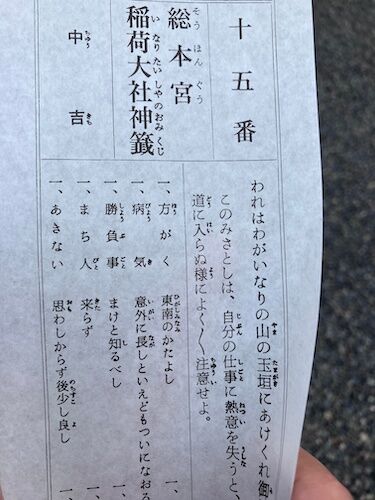 十五番
総本宮
稲荷大社神籤
中吉
われはわがいなりの山の玉垣にあけくれ御
このみさとしは、自分の仕事に熱意を失うと、
道に入らぬ様によく〱注意せよ。
一、方がく 東南のかたよし
一、病気 意外に長しといえどもついになおる
一、勝負事 まけと知るべし
一、まち人 来らず
一、あきない 思わしからず後少し良し
一、
一、